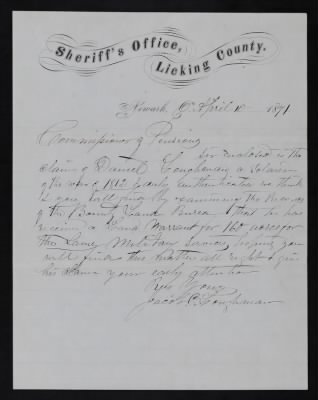 Sheriff's Office,
Licking County.
Newark, O. April 10 1871
Commissioner of Pensions
Sir enclosed is the
Claim of Daniel Loughman a Soldier
of the war of 1812 fully authenticated we think
you will find by examining the Records
of the Bounty Land Bureau that he has
received a Land Warrant for 160 acres for
this Same Military Service, hoping you
will find this matter all right & give
his Claim your early attention
Resp Yours
Jacob C. Loughman